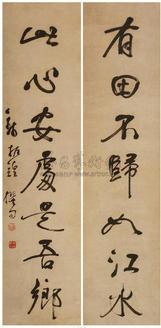 有田不歸如江水
此心安處是吾鄉